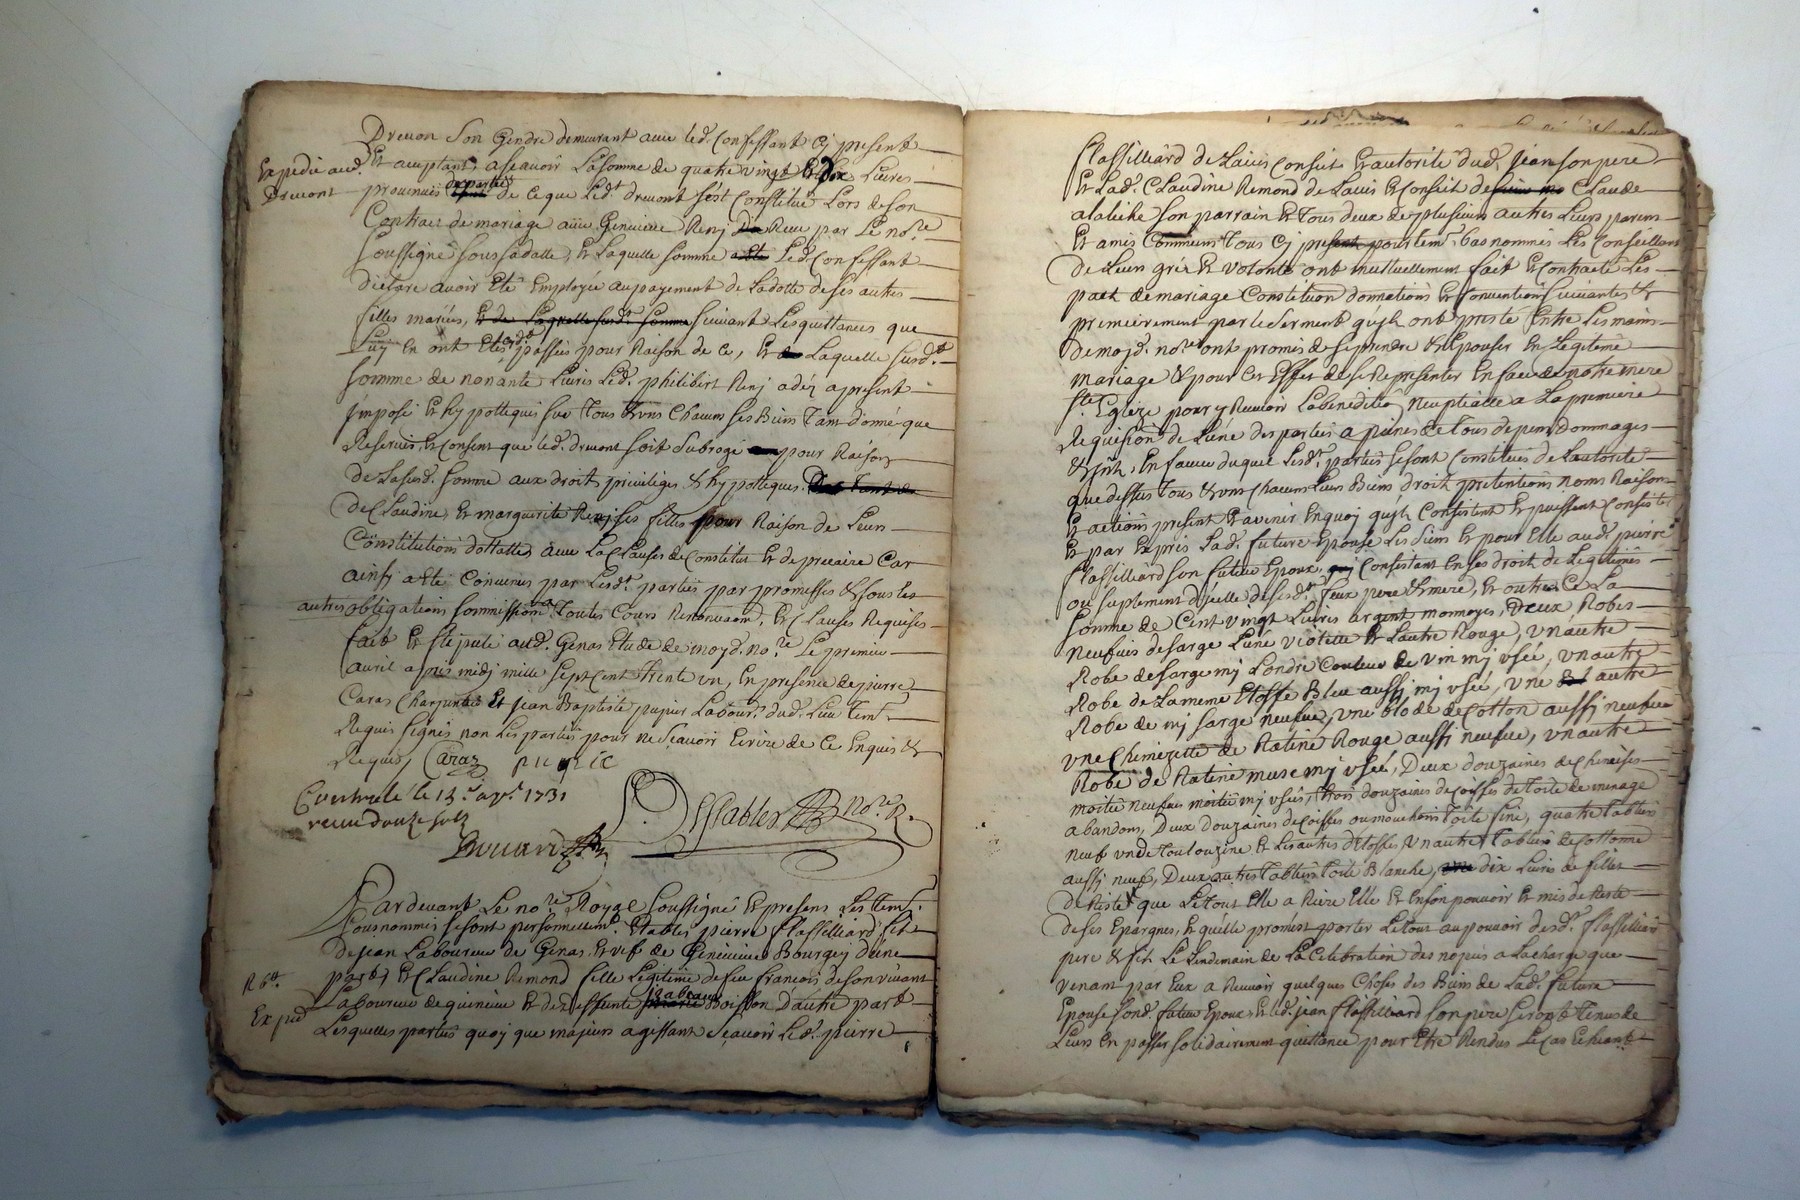 Drevon Son Gendre demeurant avec led. Confessant Cy present
Expedié aud. Drevont
Et acceptant, ascavoir La Somme de quatre vingt Et dix Livres
provenües de partie de ce que Led.t drevont s'est Constitué Lors de Son
Contrat de mariage avec Genevieve Renj Receu par Le no.re
Soussigné Sous Sa datte, Et Laquelle Somme Led. Confessant
declare avoir Eté Employée au payement de La dotte de Ses autres
filles mariées, Suivant Les quittances que
Luy En ont Eté passées pour Raison de Ce, Et Laquelle Susd.te
Somme de nonante Livres Led. philibert Renj a dez apresent
Imposé Et hypottequé Sur Tous & uns Chacuns Ses Biens Tant donné que
Reservés, Et Consent que led. drevont Soit Subrogé pour Raison
de La Susd. Somme aux droit, privileges & hypotteques
de Claudine, Et marguerite Renj Ses filles pour Raison de Leurs
Constitutions dottalles avec La Clauses de Constitut Et de precaire Car
ainsy a Eté Convenu par Lesd.t parties par promesses & sous les
autres obligations Soumissions a Toutes Cours Renonciaons, Et Clauses Requises
fait Et Stipulé aud. Genas Etude de moyd. no.re Le premier
avril apres midj mille Sept Cent Trente un, En presence de pierre
Caraz Charpentier Et jean Baptiste pupier Labour.r dud. Lieu Tem.s
Requis Signés non Les parties pour ne Scavoir Ecrire de Ce Enquis &
Requis, Caraz
Controlé le 13.e av.l 1731
receu douze sols
Essabler no.re R.
Par devant Le no.re Royal Soussigné Et presens Les tem.s
Sous nommés Se Sont personnellem.t Etablis pierre flassilliard fils
de jean Laboureur de Genas, Et vef de Genevieve Bourgey d'une
part, Et Claudine Remond fille Legitime de feu francois de Son vivant
Exped
Laboureur de quinieue Et de deffunte izabeau Boisson D'autre part
Lesquelles parties quoy que majeurs agissant Scavoir Led. pierre
flassilliard de L'avis Conseit Et autorité dud. jean Son pere
Et Lad. Claudine Remond de L'avis Et Conseit de Claude
alaliche Son parrain Et Tous deux de plusieurs autres Leurs parens
Et amis Communs Tous Cy present pour tem.s bas nommés Les Conseillant
de Leur gréz Et volonté ont mutuellement fait Et Contracté Les
pact de mariage Constitution donnations Et Convention Suivantes &
premierement par le Serment qu'jls ont presté Entre Les mains
de moyd. no.re ont promis de Se prendre & Epouser En Legitime
mariage & pour Cet Effet de Se Representer En face de notre mere
S.te Eglize pour y Recevoir La benediction nuptialle a La premiere
Requisition de L'une des parties a peines de tous depens, dommages
& Jnth, En faveur duquel Lesd.t parties Se Sont Constitués de L'autorité
que dessus Tous & uns Chacuns Leurs Biens droit pretentions noms Raisons
Et actions present Et avenir En quoy qu'jls Consistent Et puissent Consister
Et par Exprés Lad. future Epouse Les Siens Et pour Elle aud. pierre
flassilliard Son futur Epoux, Consistant En Ses droit de Legitimes
ou Suplement d'jcelle de Sesd.t feux pere & mere, Et outre Ce La
Somme de Cent vingt Livres argent monnoyes, Deux Robes
neufues de Sarge L'une violette Et L'autre Rouge, un autre
Robe de Sarge mj Londre Couleur de vin mj usée, un autre
Robe de La meme Etoffe Bleu aussj mj usée, une autre
Robe de mj Sarge neufue, une blode de Cotton aussj neufue
une Chemizette de Ratine Rouge aussj neufue, un autre
Robe de Ratine musc mj usée, Deux douzaines de Chemises
moitié neufues moitié mj usées, trois douzaines de Coiffes de toile de menage
abandons, Deux Douzaines de Coiffes ou mouchoirs toile fine, quatre tabliers
neuf un de toulouzine Et Les autres d'Etoffes, un autre Tablier de Cottonne
aussj neuf, Deux autres Tabliers Toile Blanche, dix Livres de filet
de Riste que Le Tout Elle a Riere Elle Et En Son pouvoir Et mis de Reste
de Ses Epargnes, Et qu'elle promest porter Le tout au pouvoir desd.t flassilliard
pere & fils Le Lendemain de La Celebration des nopces a La charge que
venant par Eux a Recevoir quelques Choses des Biens de Lad. future
Epouse Sond. futur Epoux, Et led. jean flassilliard Son pere Seront Tenus de
Leurs En passer Solidairement quittance pour Etre Rendus Le Cas Echeant